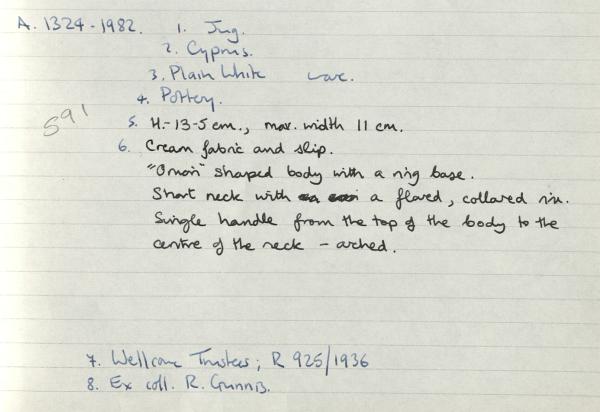 A. 1324-1982. 1. Jug.
2. Cyprus.
3. Plain White ware.
4. Pottery.
591
5. H.-13-5 cm., max. width 11 cm.
6. Cream fabric and slip.
"Onion" shaped body with a ring base.
Short neck with a flared, collared rim.
Single handle from the top of the body to the
centre of the neck - arched.
7. Wellcome Trustees; R 925/1936
8. Ex coll. R. Gunnis.